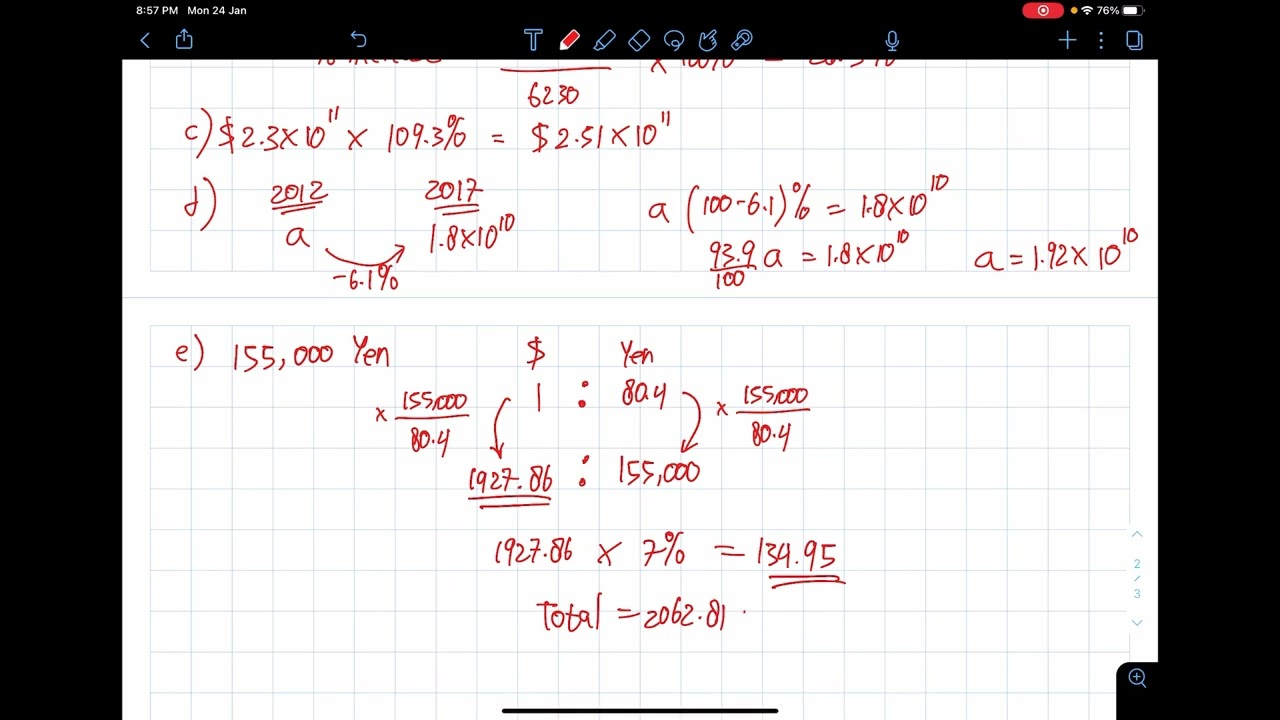 8:57 PM Mon 24 Jan 76%
T
6230
c) $2.3×10¹¹ × 109.3% = $2.51×10¹¹
d) 2012 2017 a (100-6.1)% = 1.8×10¹⁰
a 1.8×10¹⁰ 93.9/100 a = 1.8×10¹⁰ a = 1.92×10¹⁰
-6.1%
e) 155,000 Yen $ Yen
× 155,000/80.4 1 : 80.4 × 155,000/80.4
1927.86 : 155,000
1927.86 × 7% = 134.95
Total = 2062.81
2
/
3